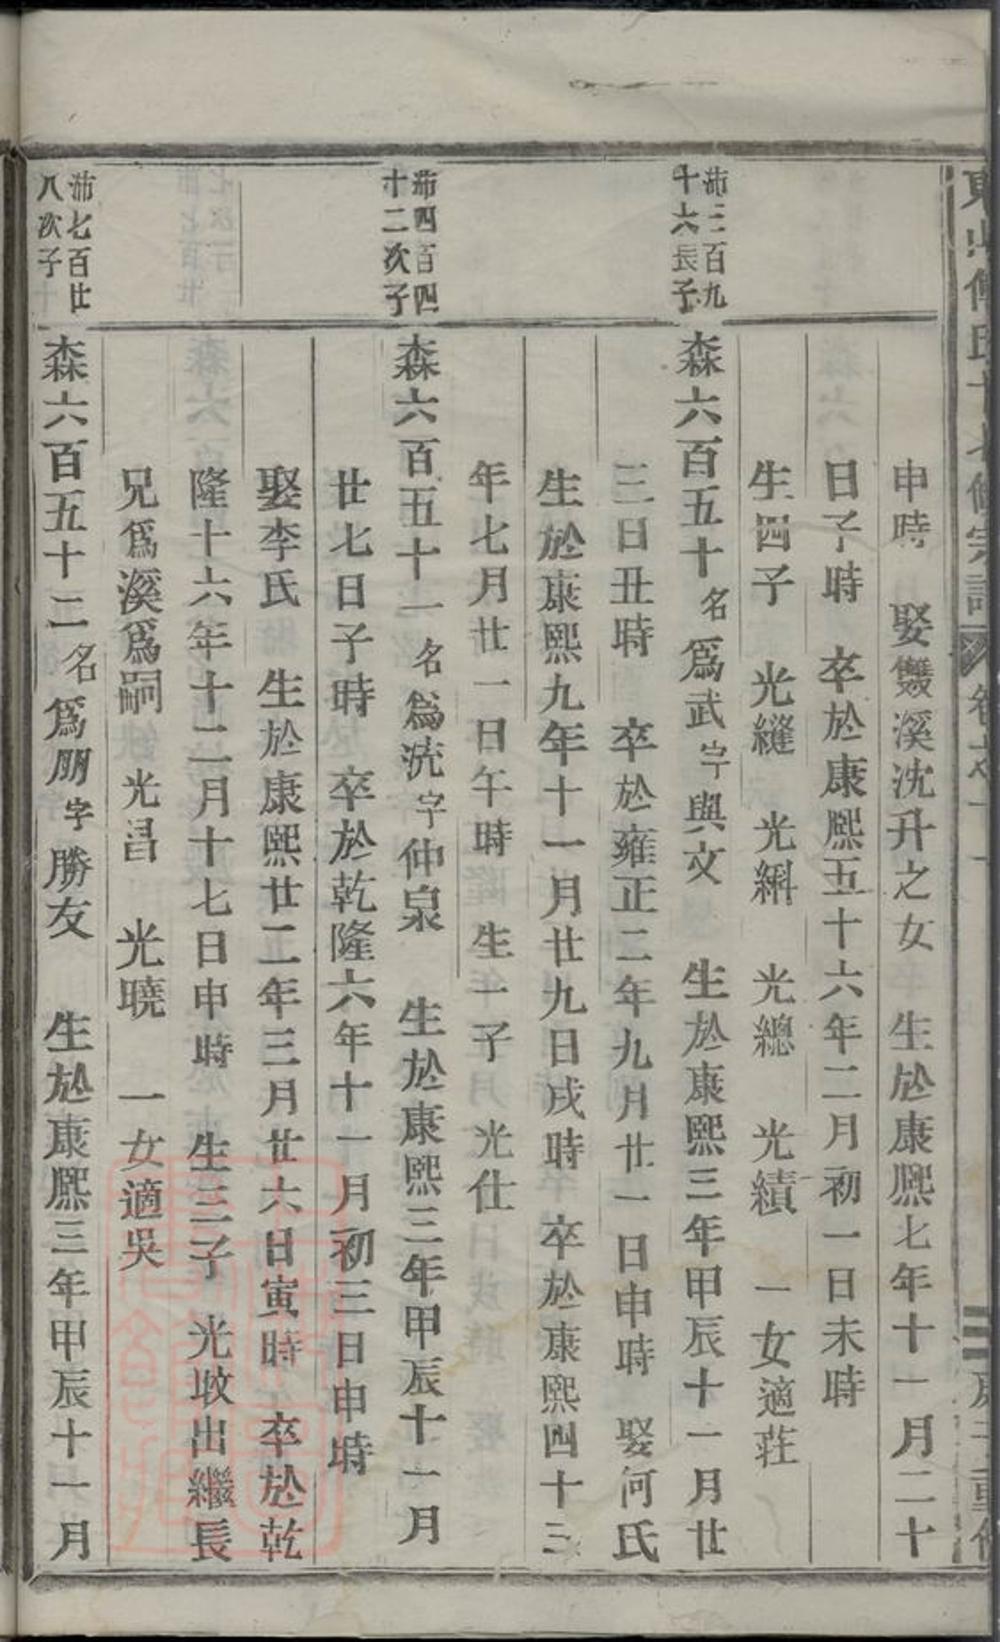 傅氏十七修宗譜
申時　娶雙溪沈升之女　生於康熙七年十一月二十
日子時　卒於康熙五十六年二月初一日未時
生四子　光縫　光緢　光總　光績　一女適莊
沛三百九十六長子
森六百五十名爲武字與文　生於康熙三年甲辰十一月廿
三日丑時　卒於雍正二年九月廿一日申時　娶何氏
生於康熙九年十一月廿九日戌時　卒於康熙四十三
年七月廿一日午時　生一子　光仕
沛四百四十二次子
森六百五十一名爲洸字仲泉　生於康熙三年甲辰十一月
廿七日子時　卒於乾隆六年十一月初三日申時
娶李氏　生於康熙廿二年三月廿六日寅時　卒於乾
隆十六年十二月十七日申時　生三子　光坆出繼長
兄爲溪爲嗣　光昌　光曉　一女適吳
沛七百廿八次子
森六百五十二名爲朋字勝友　生於康熙三年甲辰十一月